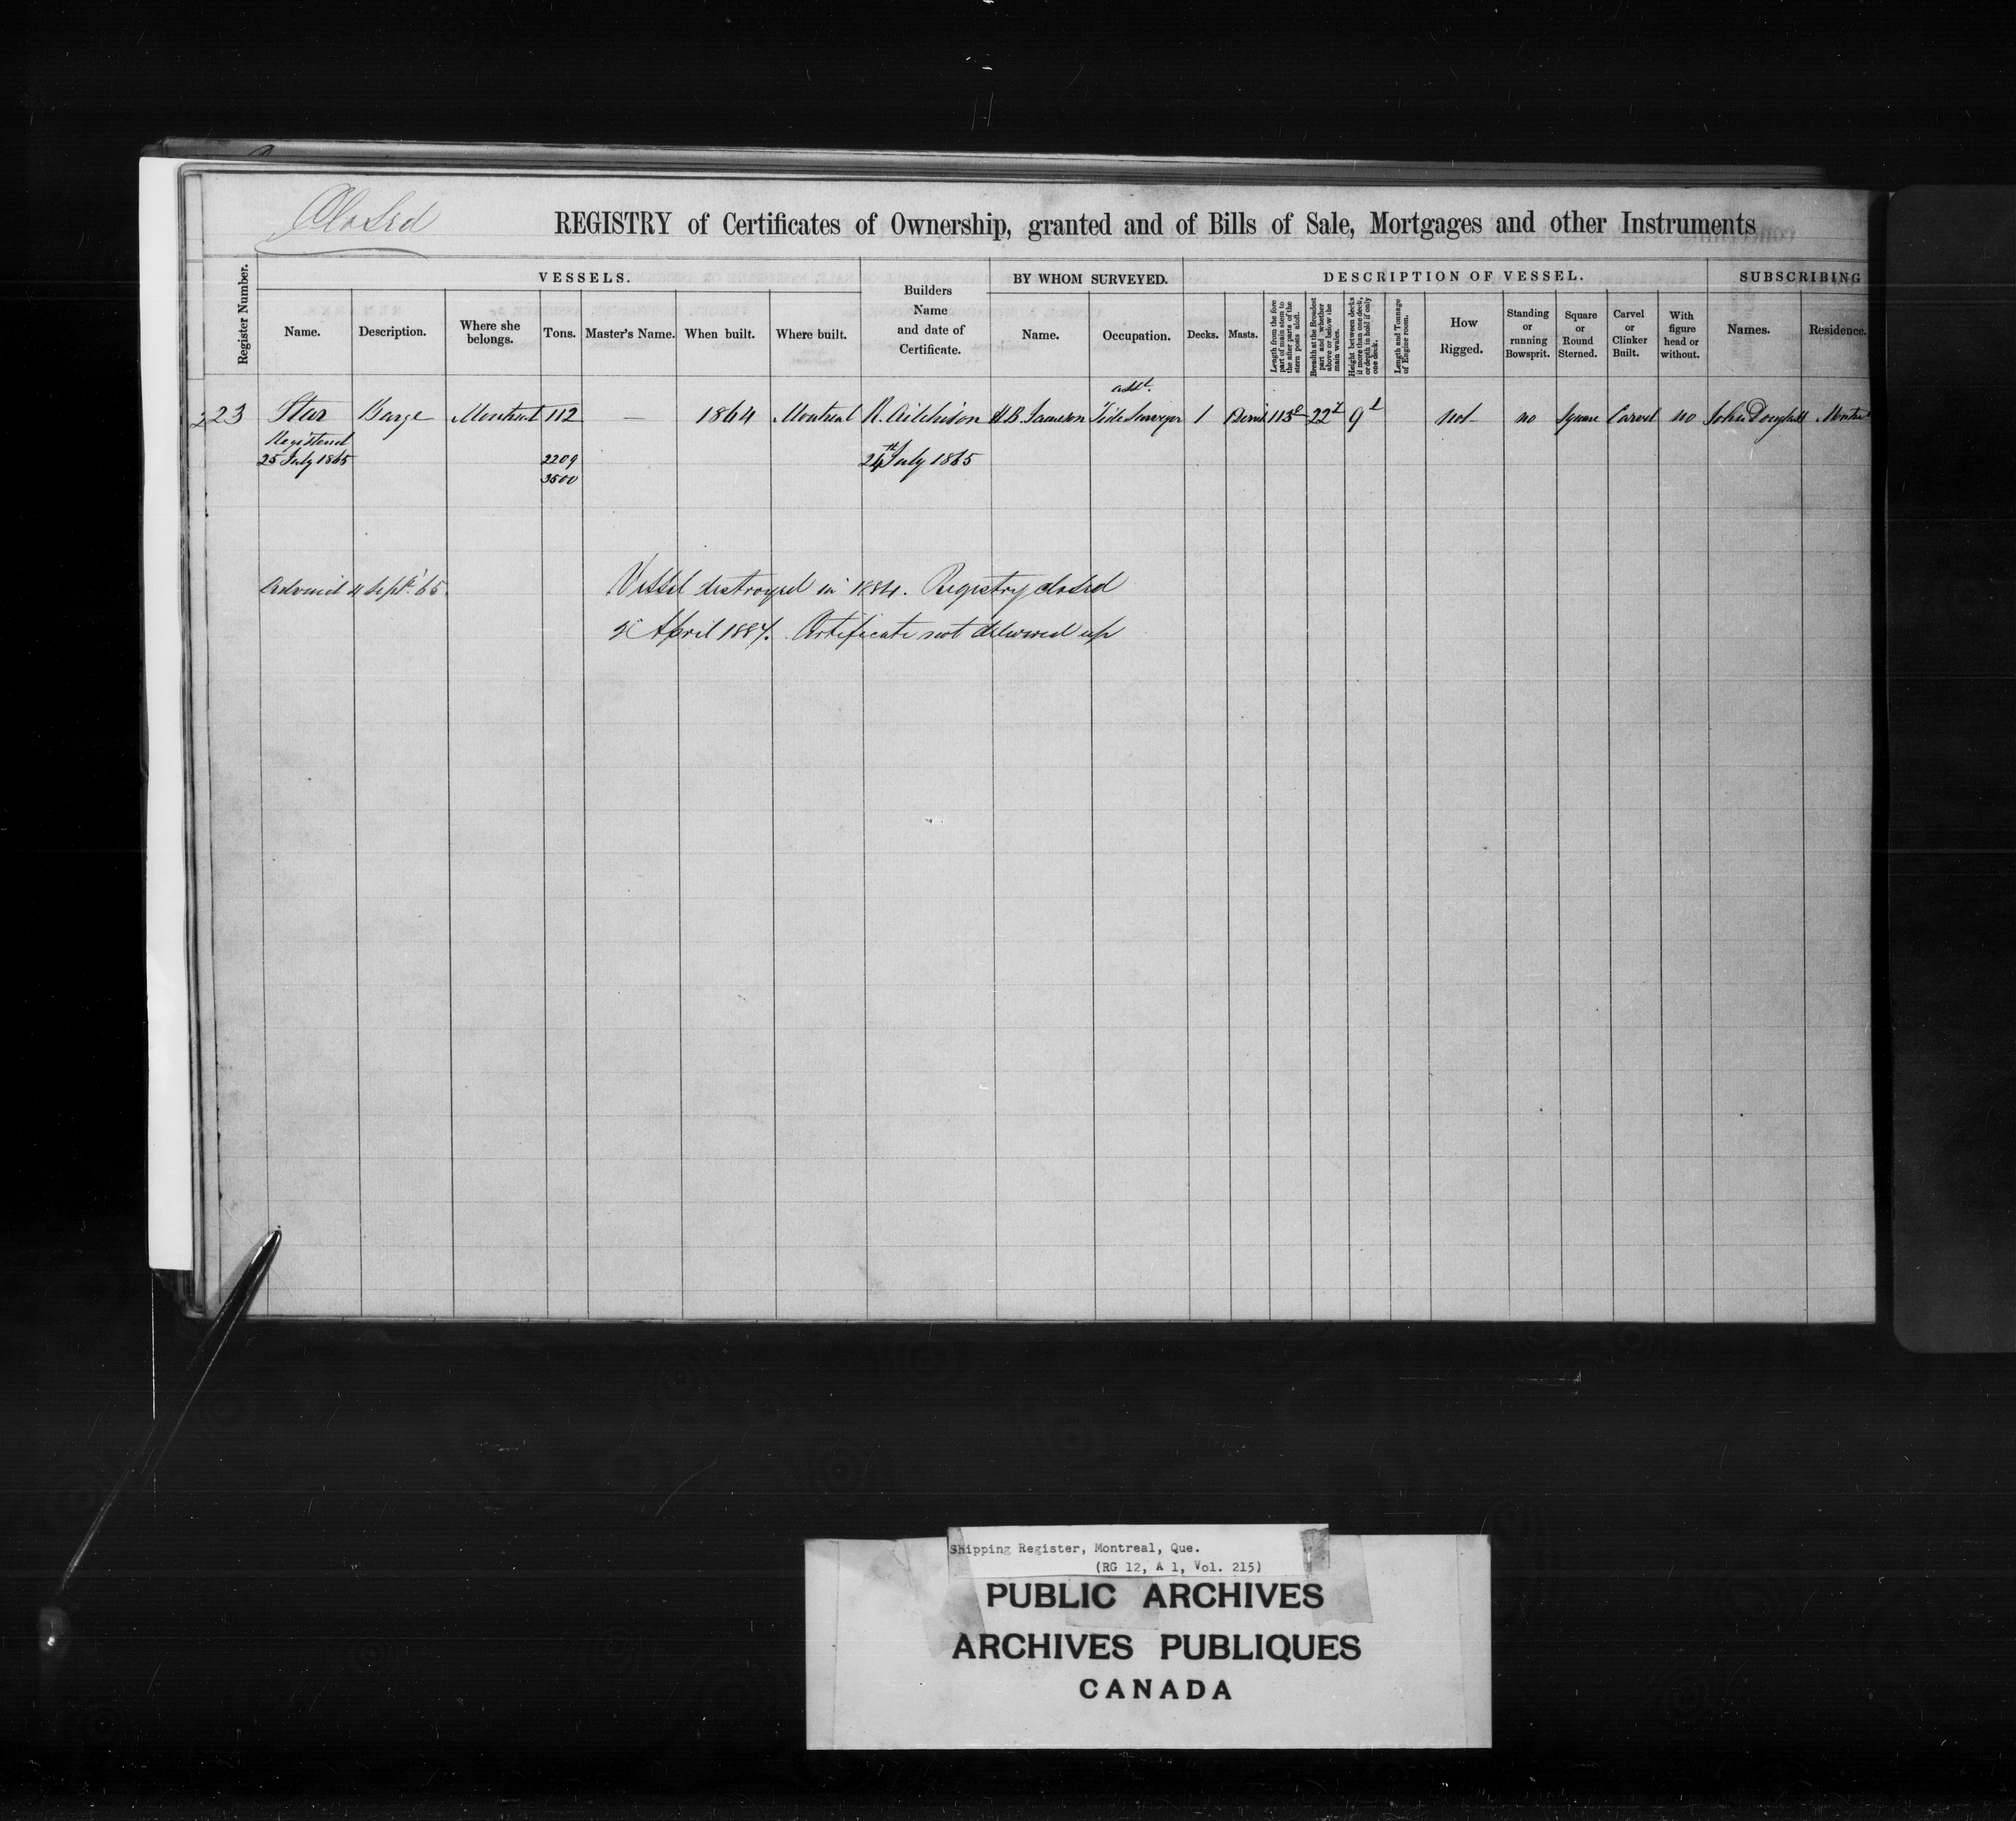 Closed
REGISTRY of Certificates of Ownership, granted and of Bills of Sale, Mortgages and other Instruments
Register Number.
VESSELS.
Name.
Description.
Where she belongs.
Tons.
Master's Name.
When built.
Where built.
Builders Name and date of Certificate.
BY WHOM SURVEYED.
Name.
Occupation.
DESCRIPTION OF VESSEL.
Decks.
Masts.
Length from the fore part of main stem to the after parts of the stern posts aloft.
Breadth at the Broadest part and whether above or below the main wales.
Height between decks if more than one deck, or depth in hold if only one deck.
Length and Tonnage of Engine room.
How Rigged.
Standing or running Bowsprit.
Square or Round Sterned.
Carvel or Clinker Built.
With figure head or without.
SUBSCRIBING
Names.
Residence.
223 Star Barge Montreal 112 — 1864 Montreal R. Aitchison Tide Surveyor 1 113 22 9 not no Square Carvel no John Dougall
Registered
25 July 1865 2209 24th July 1865
3500
4 Sept. '65.
Vessel destroyed in 1884. Registry closed
April 1887. Certificate not delivered up
Shipping Register, Montreal, Que.
(RG 12, A 1, Vol. 215)
PUBLIC ARCHIVES
ARCHIVES PUBLIQUES
CANADA